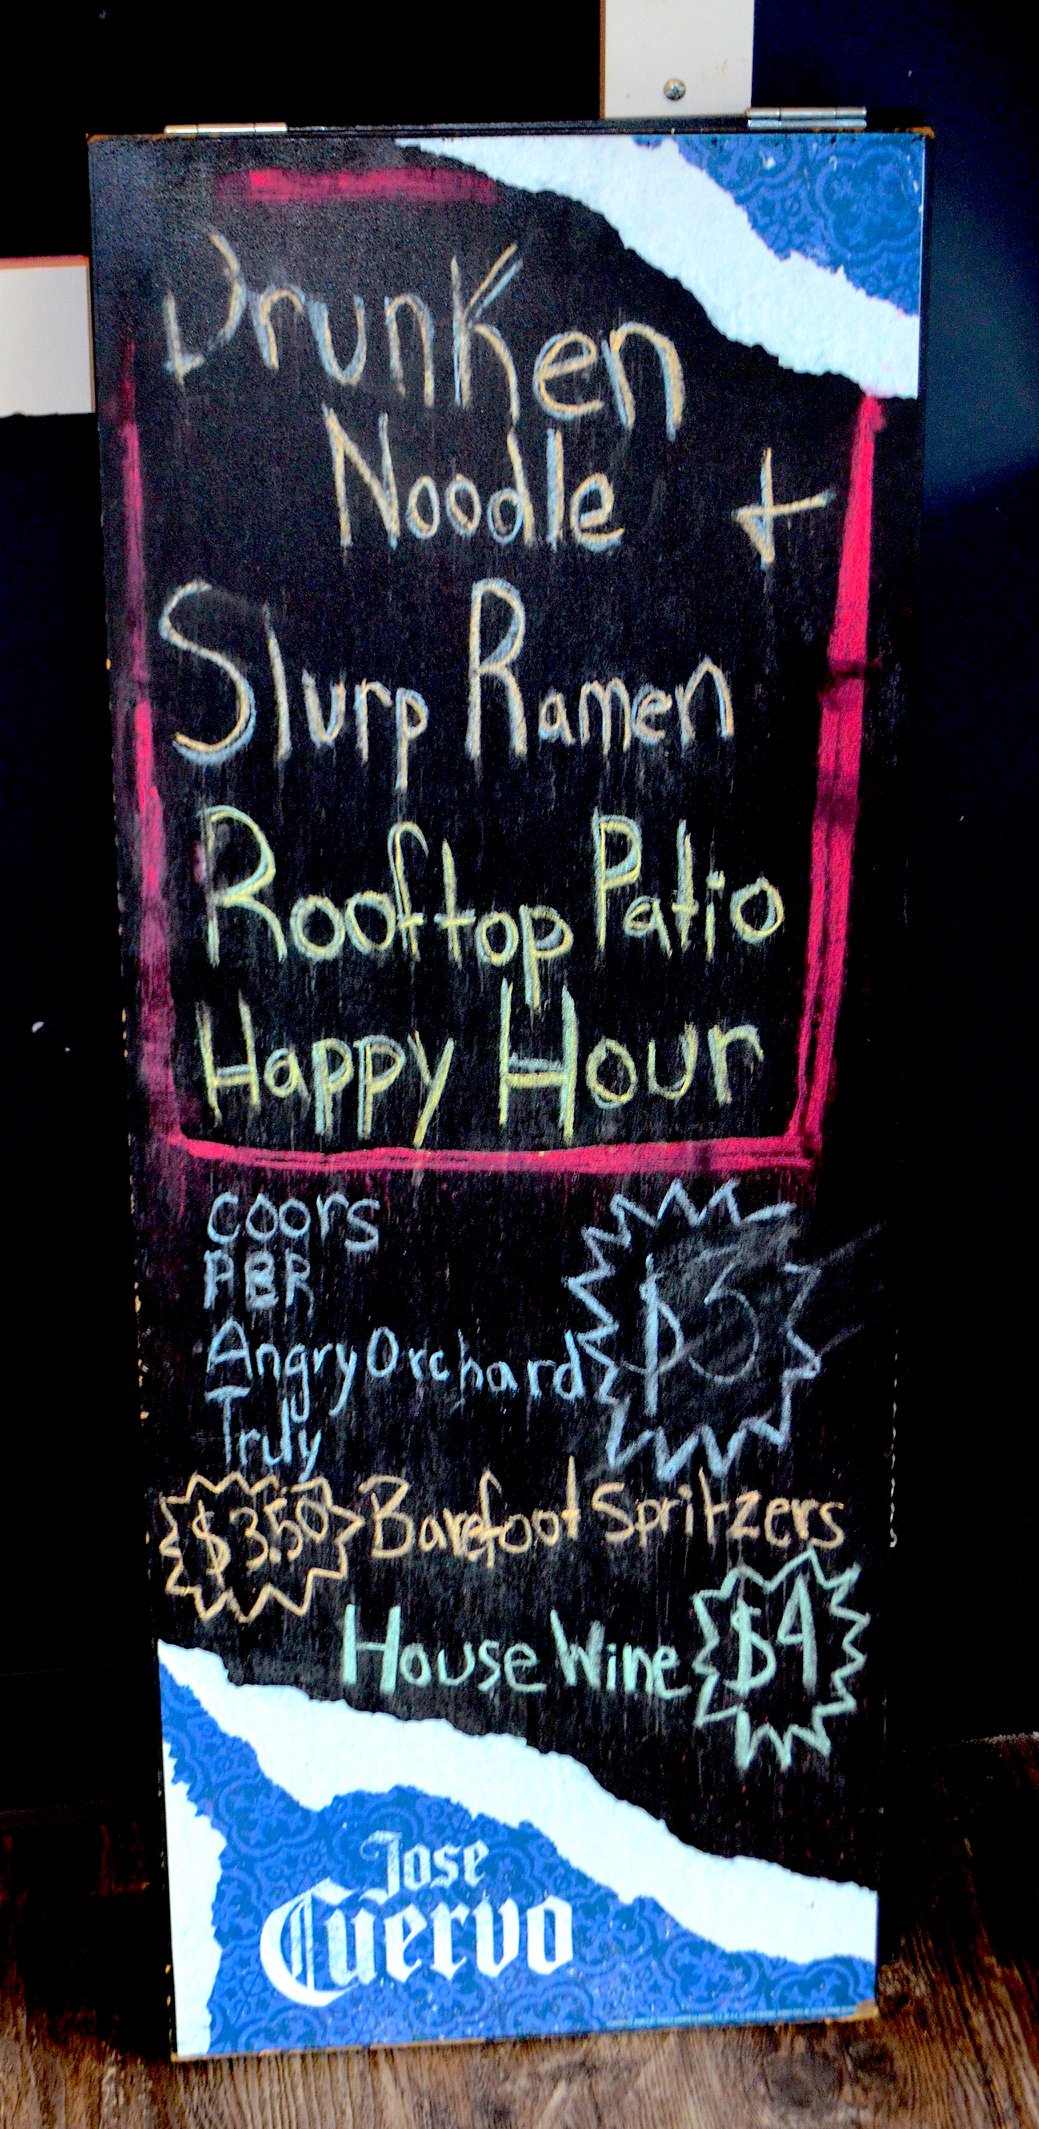 Drunken
Noodle +
Slurp Ramen
Rooftop Patio
Happy Hour
Coors
PBR
Angry Orchard $5
Truly
$3.50 Barefoot Spritzers
House Wine $4
Jose
Cuervo